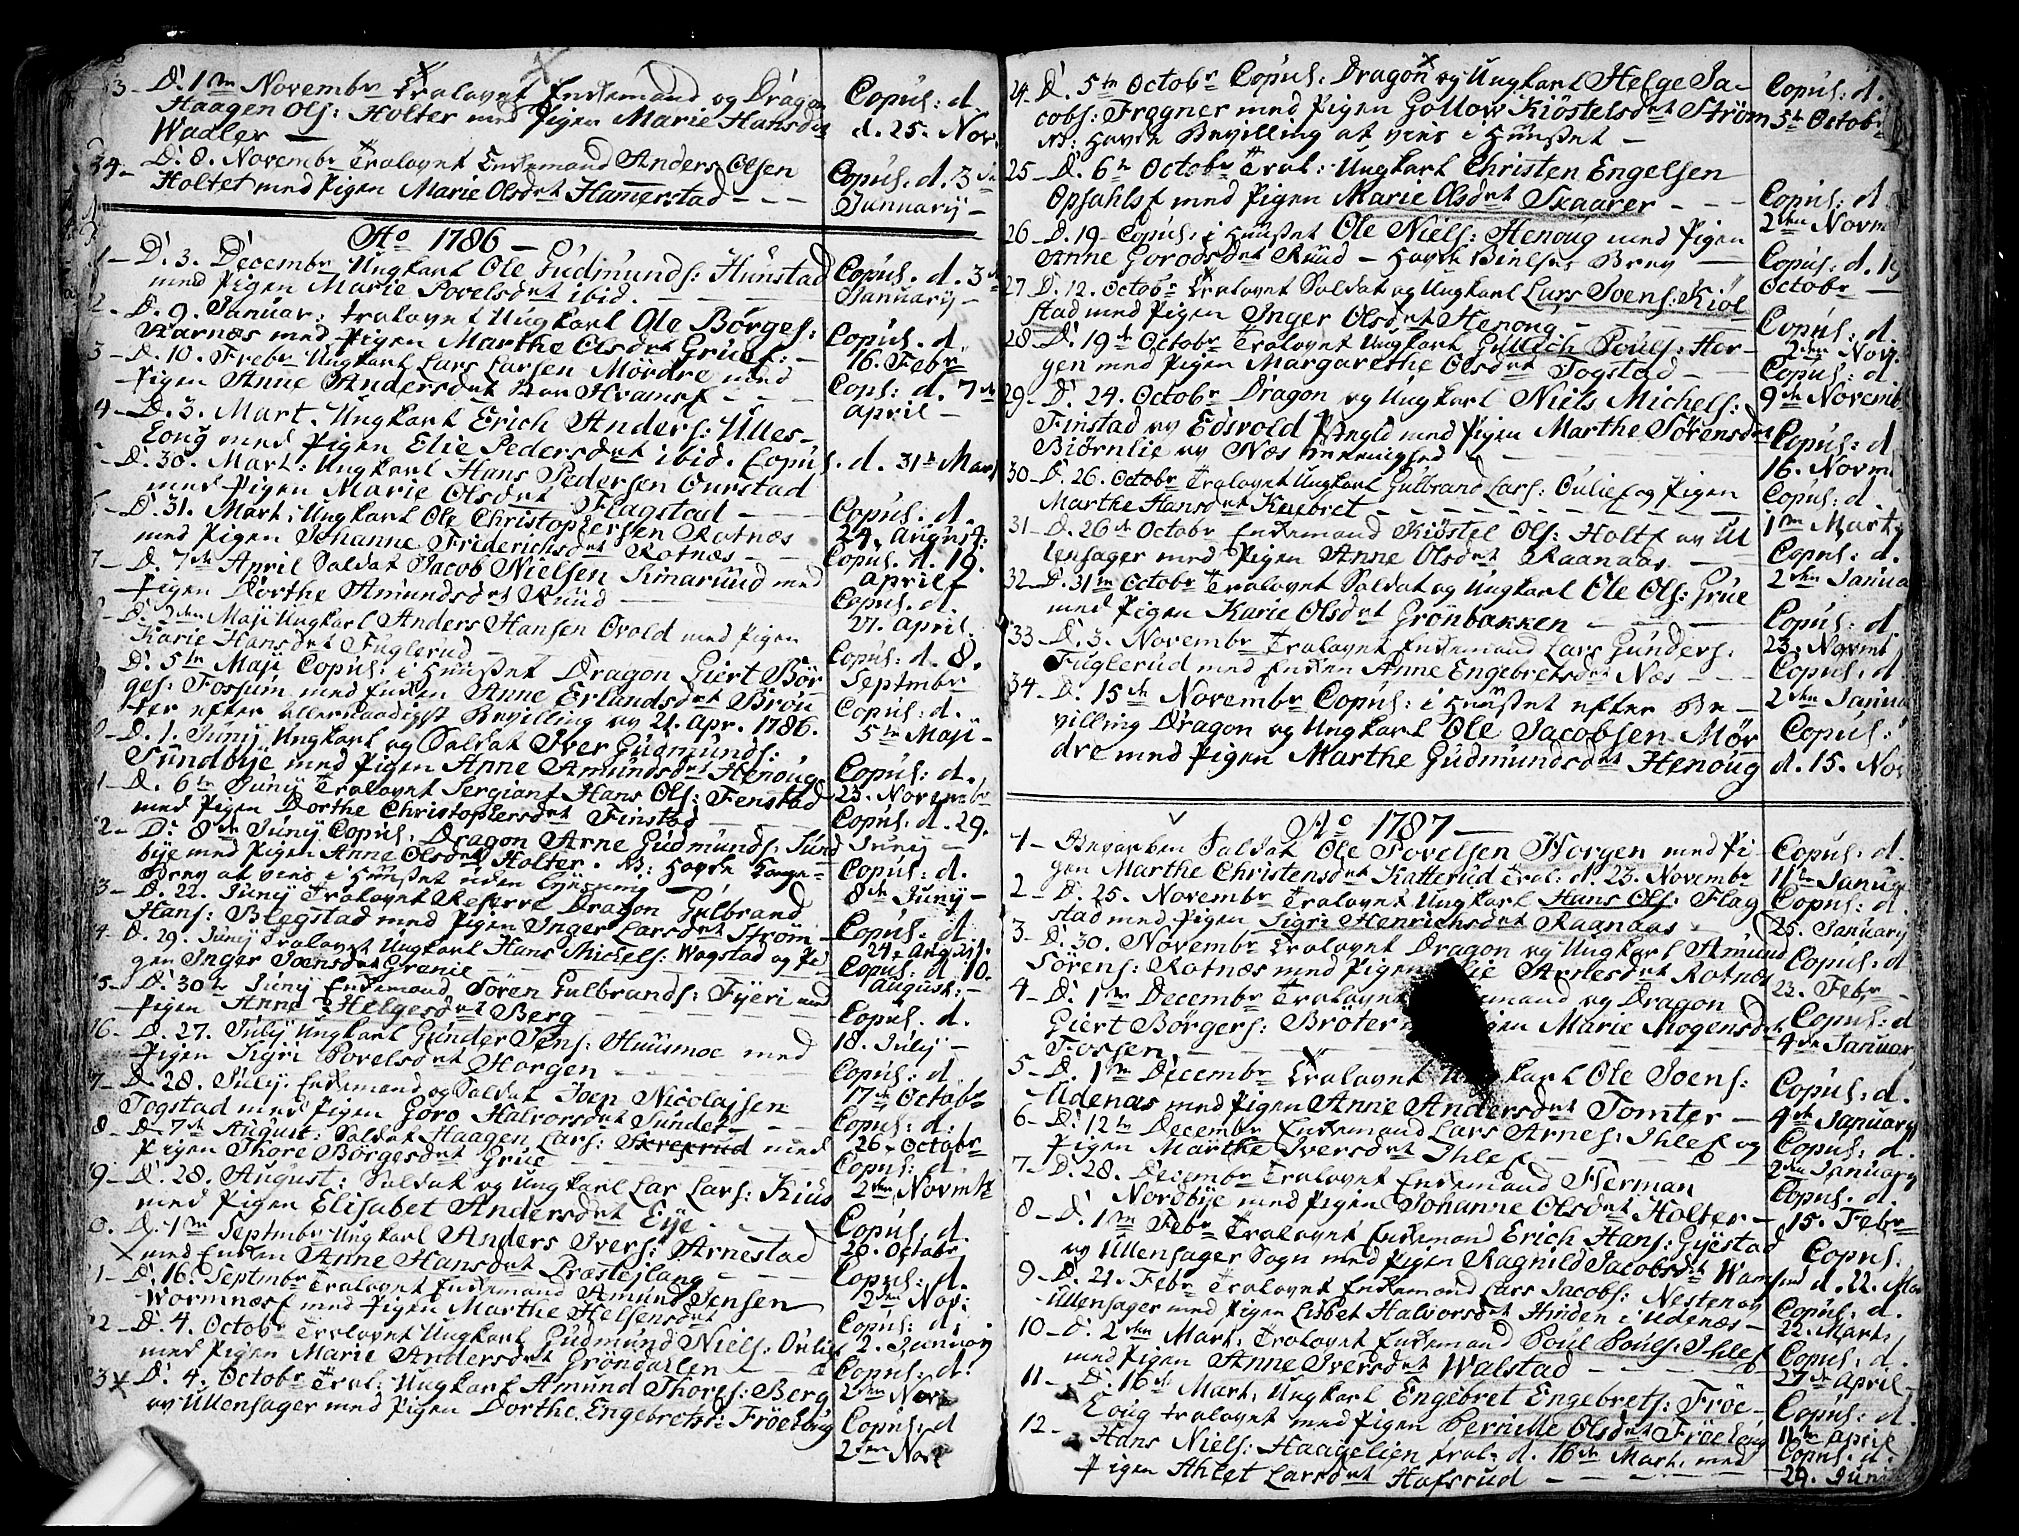 3- D. 1ste Novembr Trolovet Enkemand og Dragon
Haagen Ols: Holter med Pigen Marie Hansdr
Wadler —
Copul: d.
d. 25. Nov.
34- D. 8. Novembr Trolovet Enkemand Anders Olsen
Holtet med Pigen Marie Olsdr Hamerstad - - -
Copul. d. 3de
Januarij -
Ao 1786 -
1- D. 3. Decembr Ungkarl Ole Gudmunds: Hunstad
med Pigen Marie Povelsdr ibid. - - - -
Copul. d. 3de
Januarij -
2- D. 9. Januar: trolovet Ungkarl Ole Börges:
Skarnæs med Pigen Marthe Olsdr Gruef: -
Copul. d.
16. Febr
3- D. 10. Frebr Ungkarl Lars Larsen Mordre med
Pigen Anne Andersdr
Cops: d. 7de
april -
4- D. 3. Mart. Ungkarl Erich Anders: Ulles-
Eoug med Pigen Elie Pedersdr ibid. Copul. d. 31te Mart
- D. 30. Mart: Ungkarl Hans Pedersen Ourstad
med Pigen Marie Olsdr Flagstad - -
Copul. d.
24. August:
6- D. 31. Mart: Ungkarl Ole Christophersen Rotnæs
med Pigen Johanne Friderichsdr Rotnæs - -
Copul. d. 19.
april
7- D. 7de April Soldat Jacob Nielsen Simarüüd med
Pigen Dorthe Amundsdr Rüüd - -
Copul. d.
21. April.
D. 2den Maji Ungkarl Anders Hansen Ovold med Pigen
Karie Hansdr Fuglerud - -
Copul: d. 8.
Septmbr
D. 5te Maji Copul: i Huuset Dragon Giert Bör
ges: Fossum med Enken Anne Erlandsdr Bröu
ter efter allernaadigst Bevilling og 21. Apr. 1786.
Copul: d.
5te Maji -
0- D. 1. Junij Ungkarl og Soldat Iver Gudmunds:
Sundbÿe med Pigen Anne Amundsdr Henoug
Copul: d.
23. Novembr
11- D. 6te Junij Trolovet Sergiant Hans Ols: Fenstad
med Pigen Dorthe Christophersdr Finstad
Copul: d. 29.
Junij -
12- D. 8de Junij Copul: Dragon Arne Gudmunds: Sund
bÿe med Pigen Anne Olsdr Holter. NB: havde Konge-
Brev at vies i Huuset uden Lÿsning -
Copul: d.
8de Junij -
13- D. 22. Junij Trolovet Reserve Dragon Gulbrand
Hans: Blegstad med Pigen Inger Larsdr Ström -
Copul: d.
24. August:
14. D. 29. Junij Trolovet Ungkarl Hans Michels: Wogstad og Pi-
gen Inger Joensdr Grenie -
Copul: d. 10.
august: -
15- D. 30te Junij Enkemand Sören Gulbrands: Fÿeri med
Pigen Anne Helgesdr Berg -
Copul. d.
18. Julij -
16- D. 27. Julij Ungkarl Gunder Jens: Huusmoe med
Pigen Sigri Povelsdr Horgen - - -
Copul: d.
17de Octobr
17- D. 28. Julij. Enkemand og Soldat Joen Nicolajsen
Togstad med Pigen Goro Halvorsdr Sundet -
Copul: d.
26. Octobr
18- D. 7de August: Soldat Haagen Lars: Skrerud med
Pigen Thore Börgesdr Grue - - -
Copul: d.
2den Novmbr
19- D. 28. August: Soldat og Ungkarl Lar Lars: Kius
med Pigen Elisabet Andersdr Eÿe - -
Copul: d.
20. Octobr
20. D. 1ste Septmbr Ungkarl Anders Ivers: Arnestad
med Enken Anne Hansdr Præstejlang - - -
Copul: d.
2den Nov:
21- D. 16. Septmbr Trolovet Enkemand Amund Jensen
Wormnæs med Pigen Marthe Helsensdr
Copul: d:
2. Januarij
22- D. 4. Octobr Trolovet Ungkarl Gudmund Niels: Oulie
med Pigen Marie Andersdr Gröndallen -
Copul: d.
2den Nov:
23 D. 4. Octobr Trol: Ungkarl Amund Thores: Berg
av Ullensager med Pigen Dorthe Engebretsd: Fröehoug
Copul: d
2den Nov:
24. D. 5te Octobr Copul: Dragon og Ungkarl Helge Ja-
cobs: Frogner med Pigen Gollow Kiöstelsdr Ström
NB: havde Bevilling at vies i Huuset -
Copul: d.
5te Octobr
25 - D. 6te Octobr Trol: Ungkarl Christen Engelsen
Opsahls med Pigen Marie Olsdr Skaarer - - -
Copul: d
2den Novmb
26- D. 19- Copul: i Huuset Ole Niels: Henoug med Pigen
Anne Gorodsdr Rüüd - havde Brev -
Copul: d. 19
Octobr -
27 D. 12. Octobr Trolovet Soldat og Ungkarl Lars Joens: Kiöl
stad med Pigen Inger Olsdr Henoug. -
Copul: d.
2den Nov.
28- D. 19de Octobr Trolovet Ungkarl Gullich Pouls: Hor-
gen med Pigen Margarethe Olsdr Togstad -
Copul: d.
9de Novemb
29- D. 24. Octobr Dragon og Ungkarl Niels Michels:
Finstad og Eidsvold Præstgld med Pigen Marthe Sörensdr
Biörnlie og Næs
Copul: d
16. Novmb
30- D. 26. Octobr Trolovet Ungkarl Gulbrand Lars: Oulie og Pigen
Marthe Hansdr Knebret - - -
Copul: d.
1ste Martij
31- D. 26de Octobr Enkemand Kiöstel Ols: Holt og Ul
lensager med Pigen Anne Olsdr Raanaas - -
Copul: d.
2den Janua
32- D. 31te Octobr Trolovet Soldat og Ungkarl Ole Ols: Grüe
med Pigen Karie Olsdr Grönbakken - - -
Copul: d
23. Novmb
33- D. 3. Novembr Trolovet Enkemand Lars Gunders:
Fuglerud med Enken Anne Engebretsdr Næs - - -
Copul: d
2den Janua
34- D. 15de Novembr Copul: i Huuset efter Be-
villing Dragon og Ungkarl Ole Jacobsen Mør
dre med Pigen Marthe Gudmundsdr Henoug
Copul:
d. 15. Nov
Ao 1787 —
1- Soldat Ole Povelsen Horgen med Pi-
gen Marthe Christensdr Katterud Trol: d. 23. Novembr
Copul: d.
11te Janu
2- D. 25. Novembr Trolovet Ungkarl Hans Ols: Flag
stad med Pigen Sigri Henrichsdr Raanaas -
Copul: d.
25. Januarij
3- D. 30. Novembr Trolovet Dragon og Ungkarl Amund
Sörens: Rotnæs med Pigen Arnesdr Rotnæs
Copul: d
23. Febr -
4- D. 1ste Decembr Trolovet emand og Dragon
Giert Börgers: Bröter igen Marie Mogensdr
Fossen, - - -
Copul: d
4de Januar
5- D. 1ste Decembr Trolovet Ungkarl Ole Joens:
Udenæs med Pigen Anne Andersdr Tomter -
Copul: d.
4de Januarij
6- D. 12te Decembr Enkemand Lars Arnes: Ihle og
Pigen Marthe Iversdr Ihle - - -
Copul: d.
2den Januarij
7- D. 28. Decembr Trolovet Enkemand Herman
Nordbÿe med Pigen Johanne Olsdr Holter -
Copul. d.
15. Febr
8- D. 1ste Febr Trolovet Enkemand Erich Hans: Gÿestad
og Ullensager Sogn med Pigen Ragnild Jacobsdr Wam
Copul.
d. 22. Mar
9- D. 21. Febr Trolovet Enkemand Lars Jacobs: Nesten og
Ullensager med Pigen Lisbet Halvorsdr Hinden i Udenæs -
Copul: d.
22. Mart.
10- D. 2den Mart. Trolovet Enkemand Poul Pouls: Ihle
med Pigen Anne Iversdr Walstad - - -
Copul: d.
27de April -
11- D. 16de Mart. Ungkarl Engebret Engebrets: Fröe-
Eoug trolovet med Pigen Pernille Olsdr Fröehoug
Copul: d.
11te April
12- Hans Niels: Haagelien trol: d. 16de Mart. med
Pigen Ahlet Larsdr Hafsrud - - -
Copul: d.
29. Juni